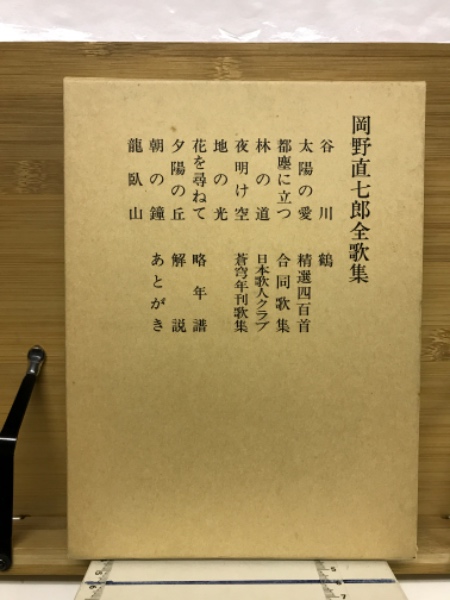 岡野直七郎全歌集
谷川　鶴
太陽の愛　精選四百首
都塵に立つ　合同歌集
林の道　日本歌人クラブ
夜明け空　蒼穹年刊歌集
地の光
花を尋ねて　略年譜
夕陽の丘　解説
朝の鐘　あとがき
龍臥山